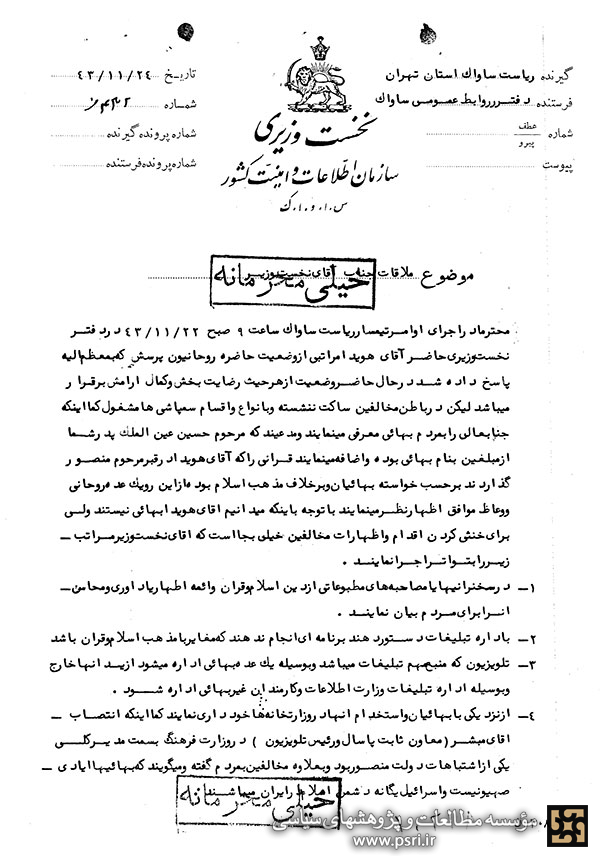 گیرنده ریاست ساواك استان تهران
فرستنده دفتر روابط عمومی ساواك
شماره عطف
پیرو
پیوست
نخست وزیری
سازمان اطلاعات و امنیت کشور
س.ا.و.ا.ک
تاریخ ۴۳/۱۱/۲۴
شماره
شماره پرونده گیرنده
شماره پرونده فرستنده
موضوع ملاقات جناب آقای نخست وزیر
خیلی محرمانه
محترماد راجرای اوامرتیمسارریاست ساواك ساعت ۹ صبح ۴۳/۱۱/۲۲ دردفتر
نخست وزیری حاضر آقای هوید امراتبی ازوضعیت حاضره روحانیون پرسش که بمعظم الیه
پاسخ داده شد درحال حاضر وضعیت ازهرحیث رضایت بخش وکمال ارامش برقرار
میباشد لیکن درباطن مخالفین ساکت ننشسته وبانواع واقسام سمپاشی ها مشغول کما اینکه
جنابعالی رابمردم بهائی معرفی مینمایند ومدعیند که مرحوم حسین عین الملك پدرشما
ازمبلغین بنام بهائی بوده واضافه مینمایند قرانی راکه آقای هوید ادرقبرمرحوم منصور
گذارد ند برحسب خواسته بهائیان وبرخلاف مذهب اسلام بوده ازاین رویك عده روحانی
ووعاظ موافق اظهارنظرمینمایند باتوجه باینکه میدانیم اقای هوید ابهائی نیستند ولی
برای خنثی کردن اقدام واظهارات مخالفین خیلی بجااست که اقای نخست وزیرمراتب ـ
زیررابتواتراجرانمایند .
۱ـ درسخنرانیهایامصاحبه های مطبوعاتی ازدین اسلام وقران وائمه اطهاریاد اوری ومحاسن ـ
انرابرای مردم بیان نمایند .
۲ـ باداره تبلیغات دستورد هند برنامه ای انجام ند هند که مغایربامذهب اسلام وقران باشد
۳ـ تلویزیون که منبع مهم تبلیغات میباشد وبوسیله یك عده بهائی اداره میشود ازید انهاخارج
وبوسیله اداره تبلیغات وزارت اطلاعات وکارمندان غیربهائی اداره شود .
۴ـ ازنزدیکی بابهائیان واستخدام انهاد روزارتخانه هاخود داری نمایند کما اینکه انتصاب ـ
اقای مبشر ( معاون ثابت پاسال ورئیس تلویزیون ) دروزارت فرهنگ بسمت مدیرکلی
یکی ازاشتباهات دولت منصوربود وبعلاوه مخالفین بمردم گفته ومیگویند که بهائیها ایادی ـ
صهیونیست واسرائیل یگانه دشمن اسلام رایران میباشند
خیلی محرمانه
مؤسسه مطالعات و پژوهشهای سیاسی
www.psri.ir